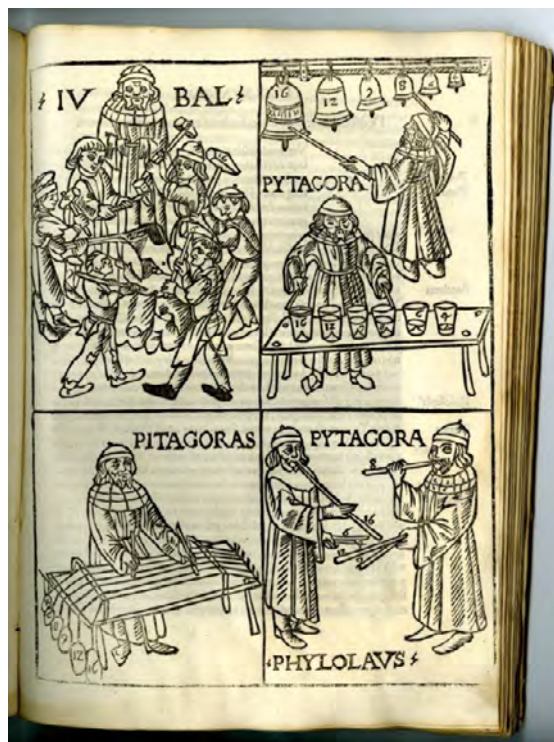 IV BAL
16 12 9 8 6 4
PYTAGORA
16 12 9 8 6 4
PITAGORAS
12 16
PYTAGORA
8
16
PHYLOLAVS